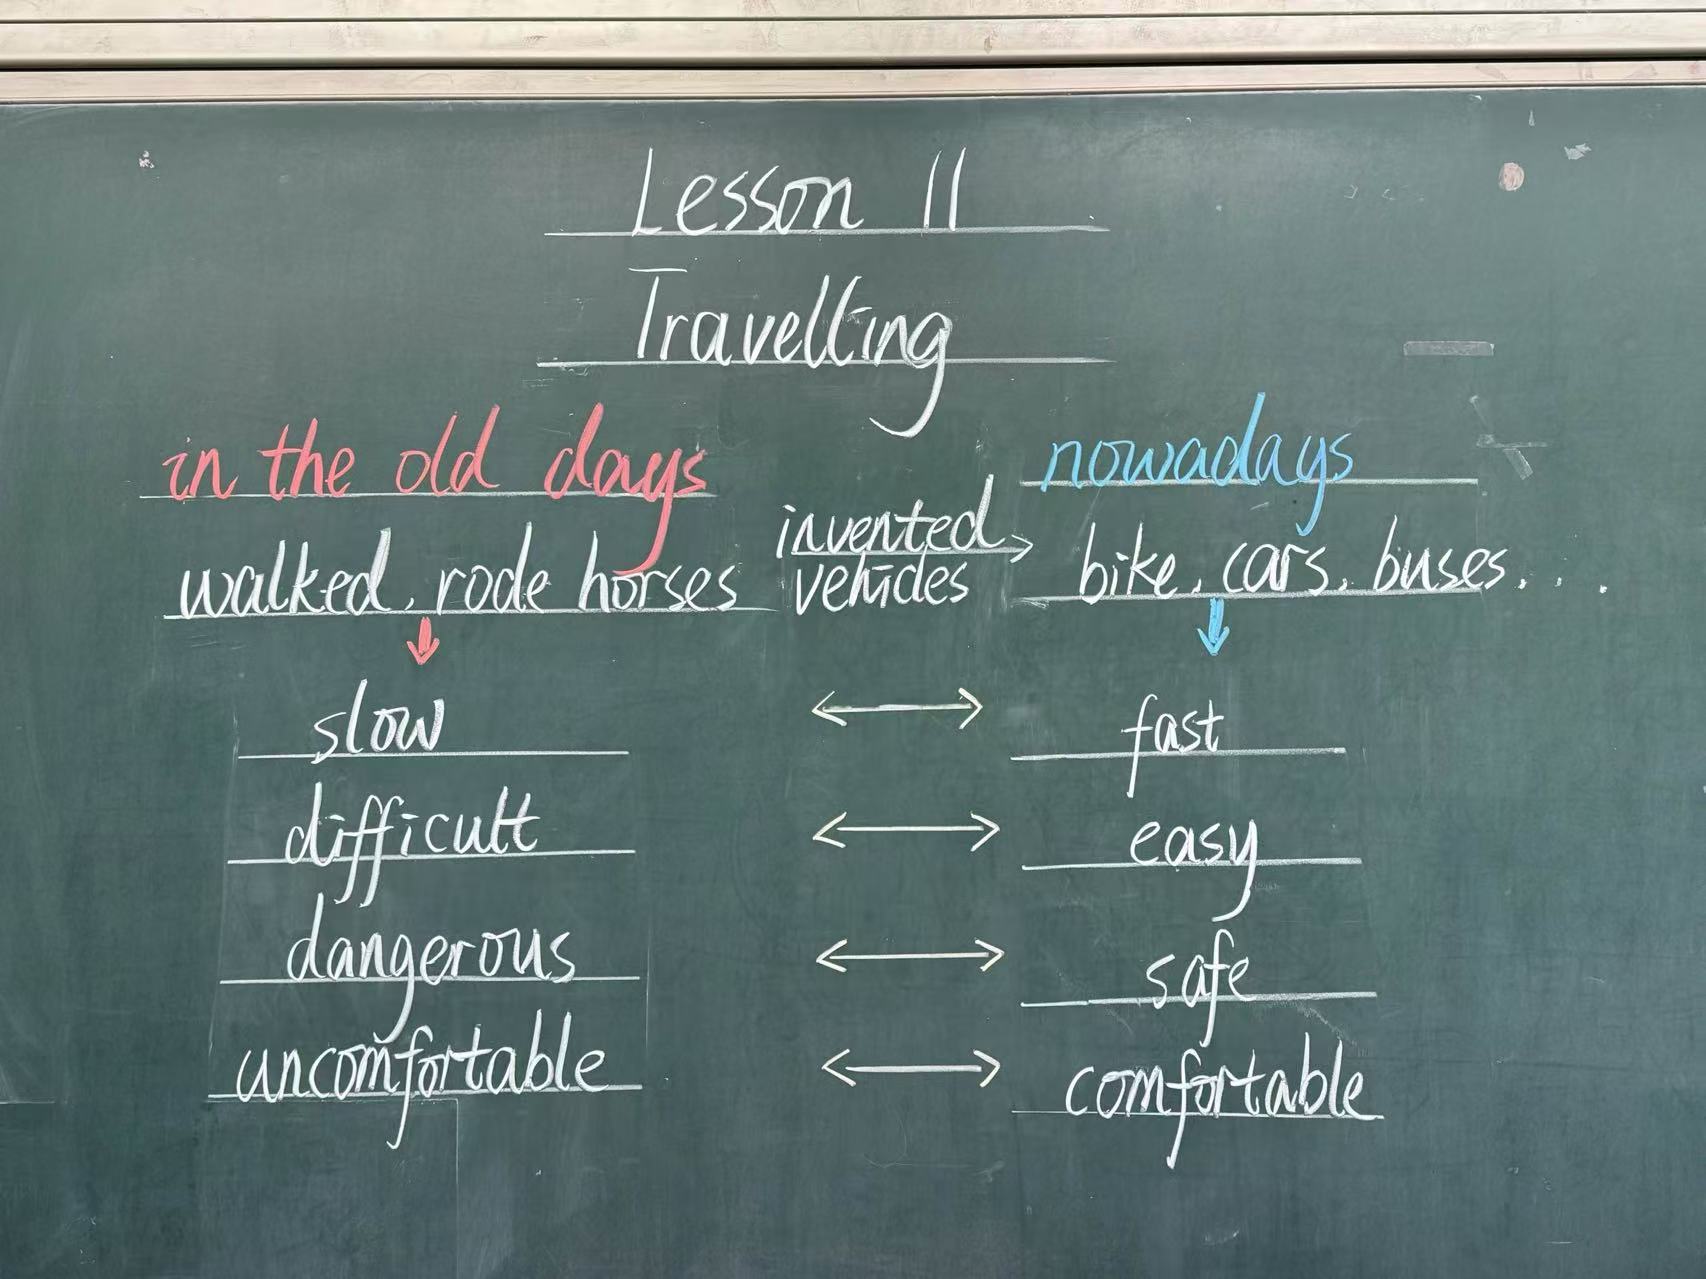 Lesson 11
Travelling
in the old days nowadays
walked, rode horses invented vehicles bike, cars, buses. . .
slow fast
difficult easy
dangerous safe
uncomfortable comfortable